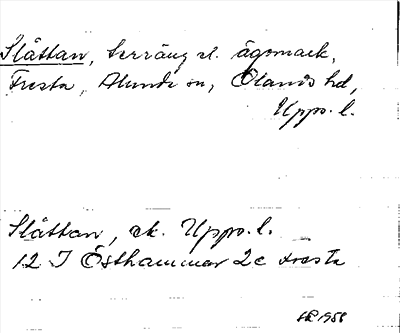 Slåttan, terräng el. ägomark,
Frösta, Alunda sn, Olands hd,
Upps. l.
Slåttan, ek. Upps. l.
12 I Östhammar 2c
1958